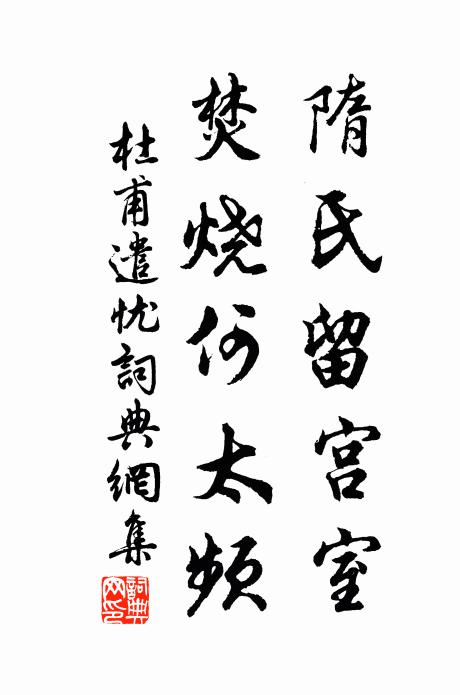 隋氏留宫室
焚烧何太频
杜甫遣忧詞典網集
詞典網印